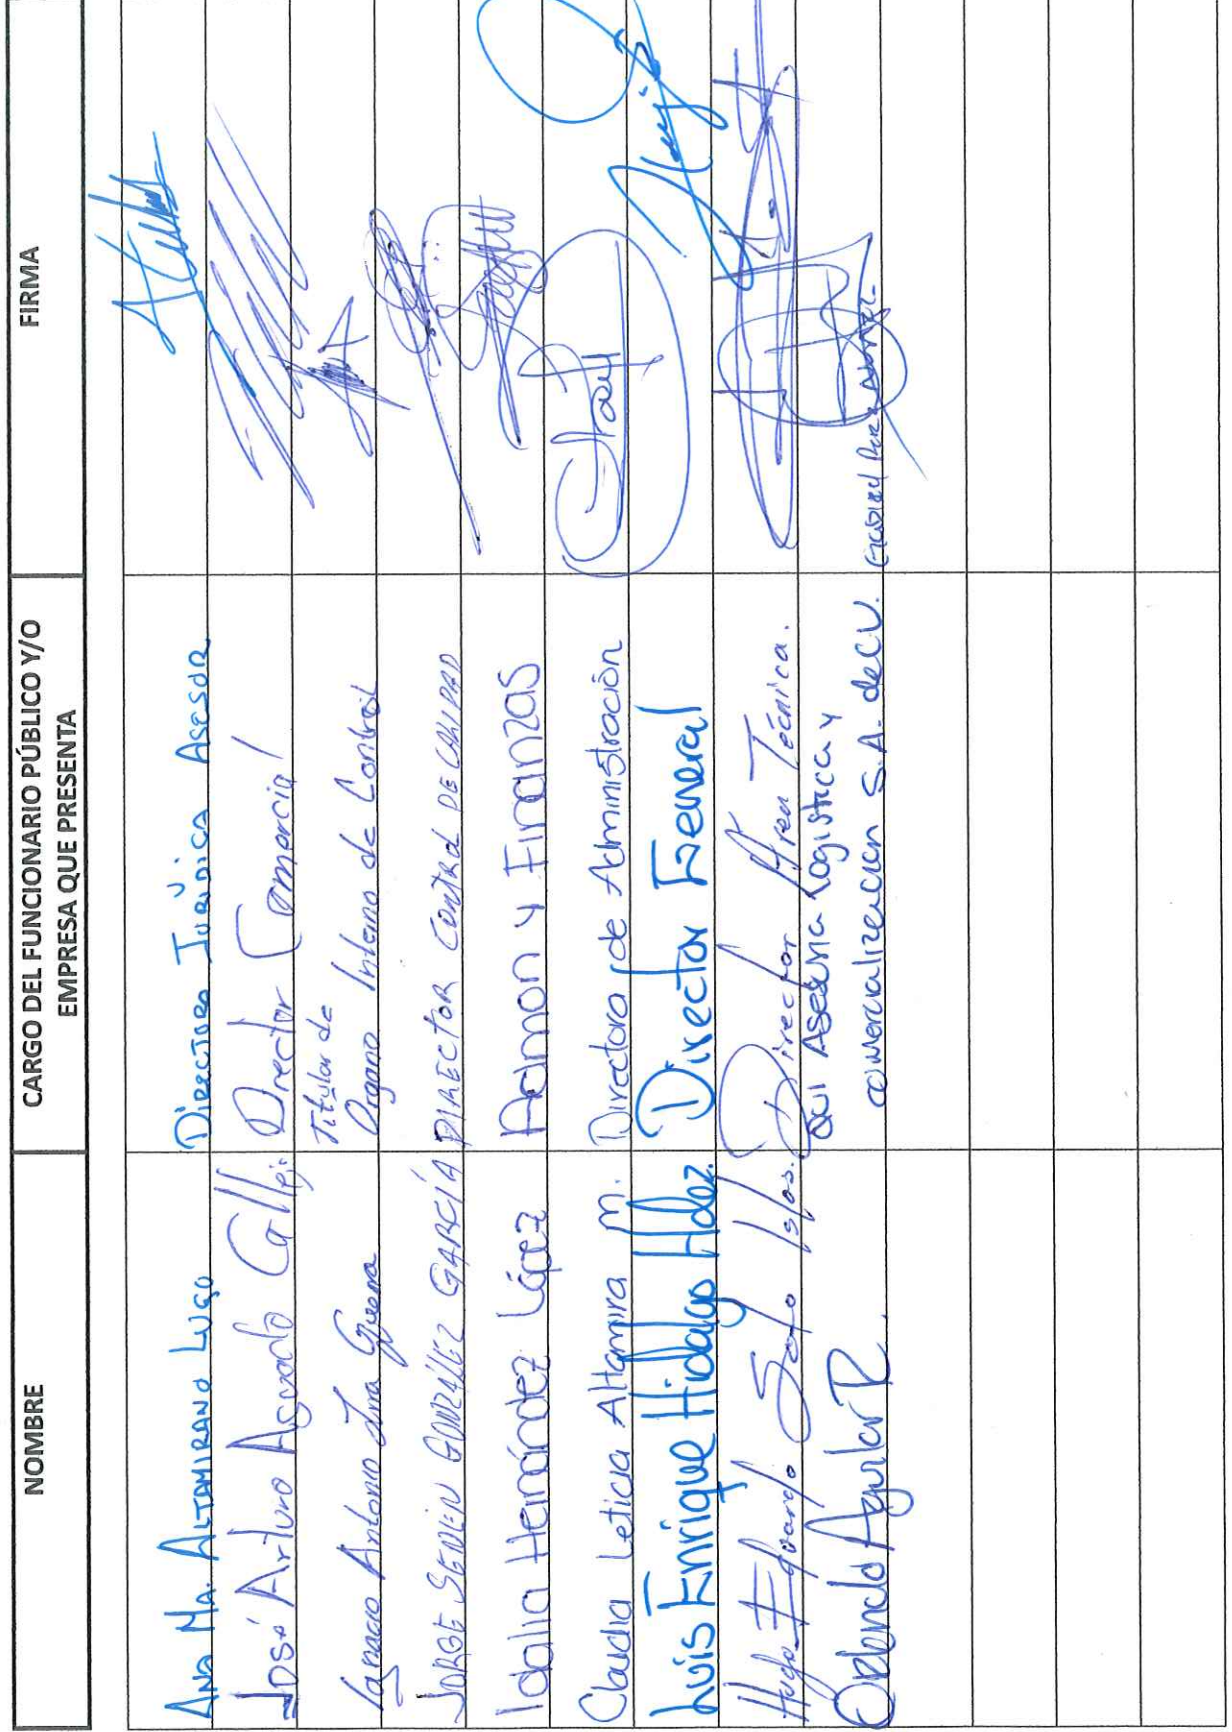 NOMBRE
CARGO DEL FUNCIONARIO PÚBLICO Y/O
EMPRESA QUE PRESENTA
FIRMA
ANA MA. ALTAMIRANO LUGO
DIRECTORA JURÍDICA ASESOR
José Arturo Aguado
Director Comercial
Ignacio Antonio Lira Guerra
Titular de
Organo Interno de Control
JORGE GONZÁLEZ GARCÍA
DIRECTOR CONTROL DE CALIDAD
Idalia Hernández López
Admon y Finanzas
Claudia Leticia Altamira M.
Directora de Administración
Luis Enrique Hidalgo Hdez.
Director General
Hugo Eduardo Soto Islas.
Director Area Técnica.
Orlando Aguilar R.
QUI Asesoria Logistica y
comercialización S.A. de C.V.